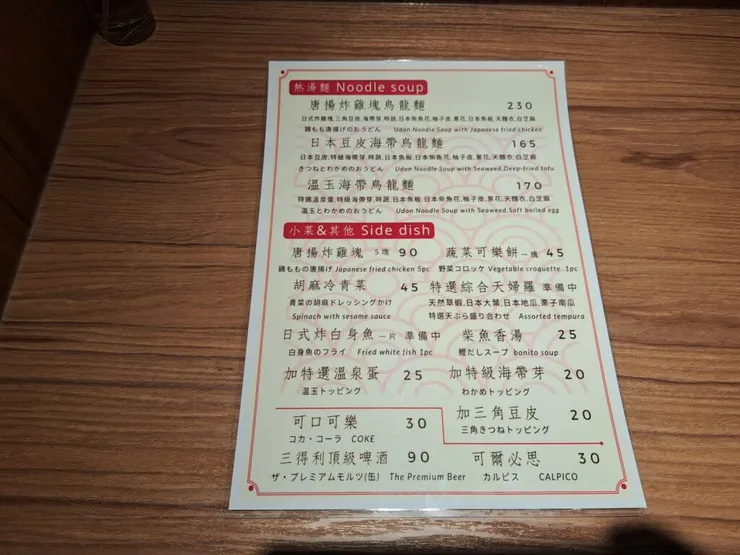 熱湯麵 Noodle soup
唐揚炸雞塊烏龍麵 230
日式炸雞塊,三角豆皮,海帶芽,時蔬,日本柴魚花,柚子皮,蔥花,日本魚板,天麵衣,白芝麻
鶏もも唐揚げのおうどん Udon Noodle Soup with Japanese fried chicken
日本豆皮海帶烏龍麵 165
日本豆皮,特級海帶芽,時蔬,日本魚板,日本柴魚花,柚子皮,蔥花,天麵衣,白芝麻
きつねとわかめのおうどん Udon Noodle Soup with Seaweed.Deep-fried tofu
溫玉海帶烏龍麵 170
特選溫泉蛋,特級海帶芽,時蔬,日本魚板,日本柴魚花,柚子皮,蔥花,天麵衣,白芝麻
温玉とわかめのおうどん Udon Noodle Soup with Seaweed.Soft boiled egg
小菜&其他 Side dish
唐揚炸雞塊 5塊 90 蔬菜可樂餅一塊 45
鶏ももの唐揚げ Japanese fried chicken 5pc 野菜コロッケ Vegetable croquette 1pc
胡麻冷青菜 45 特選綜合天婦羅 準備中
青菜の胡麻ドレッシングかけ 天然草蝦,日本大葉,日本地瓜,栗子南瓜
Spinach with sesame sauce 特選天ぷら盛り合わせ Assorted tempura
日式炸白身魚 一片 準備中 柴魚香湯 25
白身魚のフライ Fried white fish 1pc 鰹だしスープ bonito soup
加特選溫泉蛋 25 加特級海帶芽 20
温玉トッピング わかめトッピング
可口可樂 30 加三角豆皮 20
コカ・コーラ COKE 三角きつねトッピング
三得利頂級啤酒 90 可爾必思 30
ザ・プレミアムモルツ(缶) The Premium Beer カルピス CALPICO